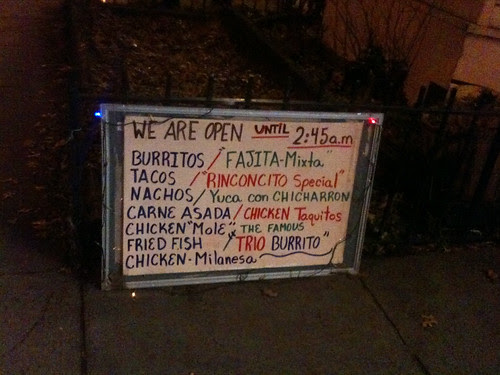 WE ARE OPEN UNTIL 2:45a.m
BURRITOS / "FAJITA-Mixta"
TACOS / "RINCONCITO Special"
NACHOS / Yuca con CHICHARRON
CARNE ASADA / CHICKEN Taquitos
CHICKEN "Mole" * THE FAMOUS
FRIED FISH / "TRIO BURRITO"
CHICKEN-Milanesa